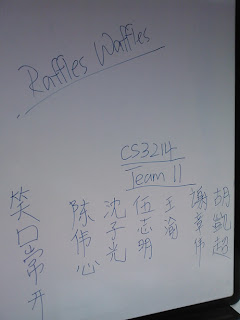 Raffles Waffles
CS3214
Team 11
胡凱超
謝章伟
王瀚
伍志明
沈子光
陈伟心
笑口常开